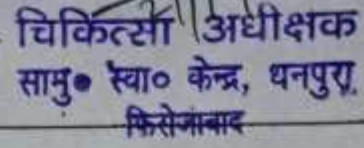 चिकित्सा अधीक्षक
सामु० स्वा० केन्द्र, धनपुरा,
फिरोजाबाद